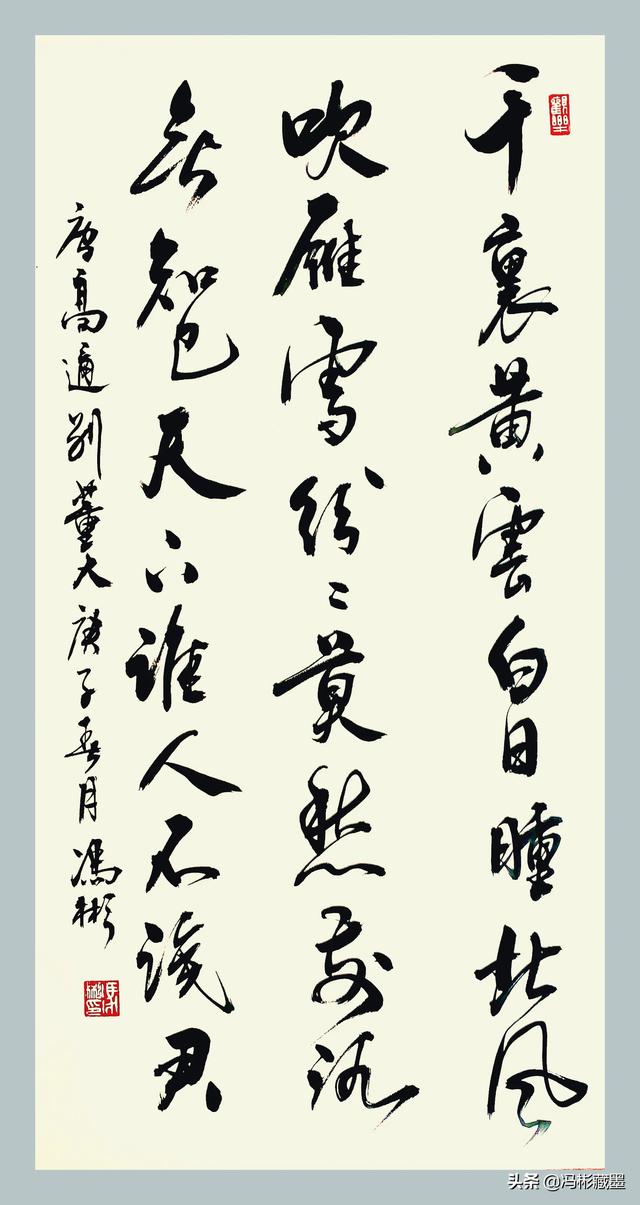 千裏黄雲白日曛北風
吹雁雪紛々莫愁前路
無知己天下誰人不識君
唐高適別董大庚子春月馮彬
馮彬印
头条 @冯彬藏墨